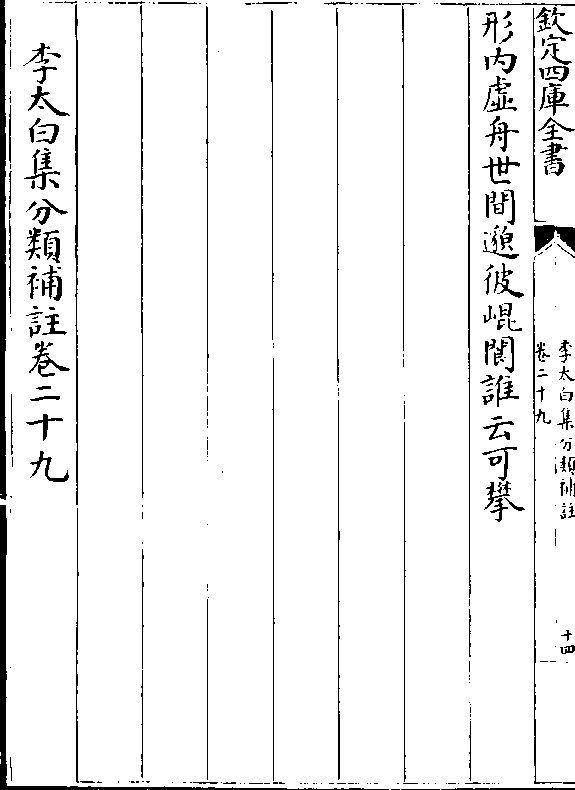 欽定四庫全書
李太白集分類補註
卷二十九
十四
形内虛舟世間邈彼崐閬誰云可攀
李太白集分類補註卷二十九